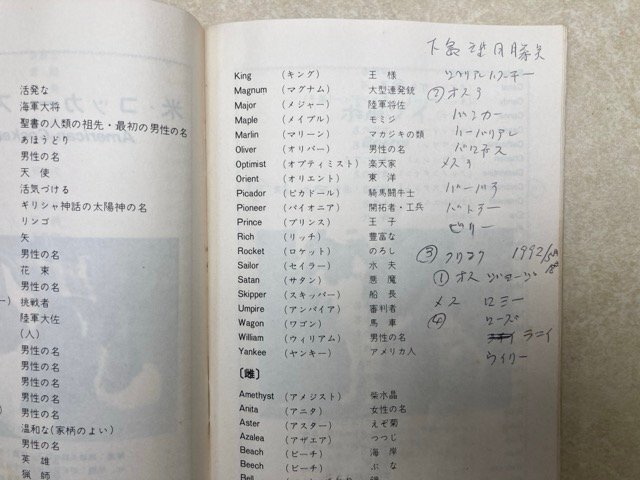 活発な
海軍大将
聖書の人類の祖先・最初の男性の名
あほうどり
男性の名
天使
活気づける
ギリシャ神話の太陽神の名
リンゴ
矢
男性の名
花束
男性の名
挑戦者
陸軍大佐
(人)
男性の名
男性の名
男性の名
男性の名
男性の名
温和な(家柄のよい)
男性の名
英雄
猟師
King (キング) 王様
Magnum (マグナム) 大型連発銃 ② オス
Major (メジャー) 陸軍将佐
Maple (メイプル) モミジ
Marlin (マリーン) マカジキの類
Oliver (オリバー) 男性の名
Optimist (オプティミスト) 楽天家 メス
Orient (オリエント) 東洋
Picador (ピカドール) 騎馬闘牛士 バーバラ
Pioneer (パイオニア) 開拓者・工兵
Prince (プリンス) 王子
Rich (リッチ) 豊富な
Rocket (ロケット) のろし ③ 1992/
Sailor (セイラー) 水夫 ① オス
Satan (サタン) 悪魔
Skipper (スキッパー) 船長 メス ロミー
Umpire (アンパイア) 審判者 ④ ローズ
Wagon (ワゴン) 馬車
William (ウィリアム) 男性の名
Yankee (ヤンキー) アメリカ人 ウイリー
[雌]
Amethyst (アメジスト) 柴水晶
Anita (アニタ) 女性の名
Aster (アスター) えぞ菊
Azalea (アザエア) つつじ
Beach (ビーチ) 海岸
Beech (ビーチ) ぶな
Bell